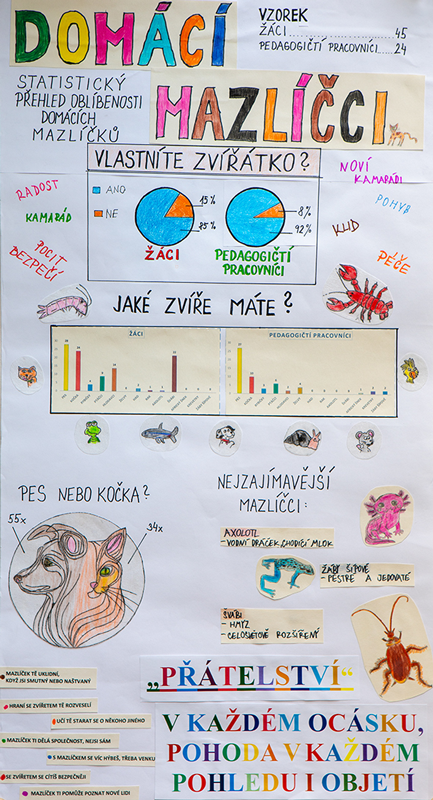 DOMÁCÍ
MAZLÍČCI
VZOREK
ŽÁCI..................45
PEDAGOGIČTÍ PRACOVNÍCI.....24
STATISTICKÝ
PŘEHLED OBLÍBENOSTI
DOMÁCÍCH
MAZLÍČKŮ
VLASTNÍTE ZVÍŘÁTKO?
ANO
NE
15%
85%
ŽÁCI
8%
92%
PEDAGOGIČTÍ
PRACOVNÍCI
RADOST
KAMARÁD
POCIT
BEZPEČÍ
NOVÍ
KAMARÁDI
POHYB
KLID
PÉČE
JAKÉ ZVÍŘE MÁTE?
ŽÁCI
PEDAGOGIČTÍ PRACOVNÍCI
PES NEBO KOČKA?
55x
34x
NEJZAJÍMAVĚJŠÍ
MAZLÍČCI:
AXOLOTL
- VODNÍ DRÁČEK, CHODÍCÍ MLOK
ŽÁBY ŠÍPOVÉ
- PESTRÉ A JEDOVATÉ
ŠVÁBI
- HMYZ
- CELOSVĚTOVĚ ROZŠÍŘENÝ
MAZLÍČEK TĚ UKLIDNÍ,
KDYŽ JSI SMUTNÝ NEBO NAŠTVANÝ
HRANÍ SE ZVÍŘETEM TĚ ROZVESELÍ
UČÍ TĚ STARAT SE O NĚKOHO JINÉHO
MAZLÍČEK TI DĚLÁ SPOLEČNOST, NEJSI SÁM
S MAZLÍČKEM SE VÍC HÝBEŠ, TŘEBA VENKU
SE ZVÍŘETEM SE CÍTÍŠ BEZPEČNĚJI
MAZLÍČEK TI POMŮŽE POZNAT NOVÉ LIDI
„PŘÁTELSTVÍ“
V KAŽDÉM OCÁSKU,
POHODA V KAŽDÉM
POHLEDU I OBJETÍ